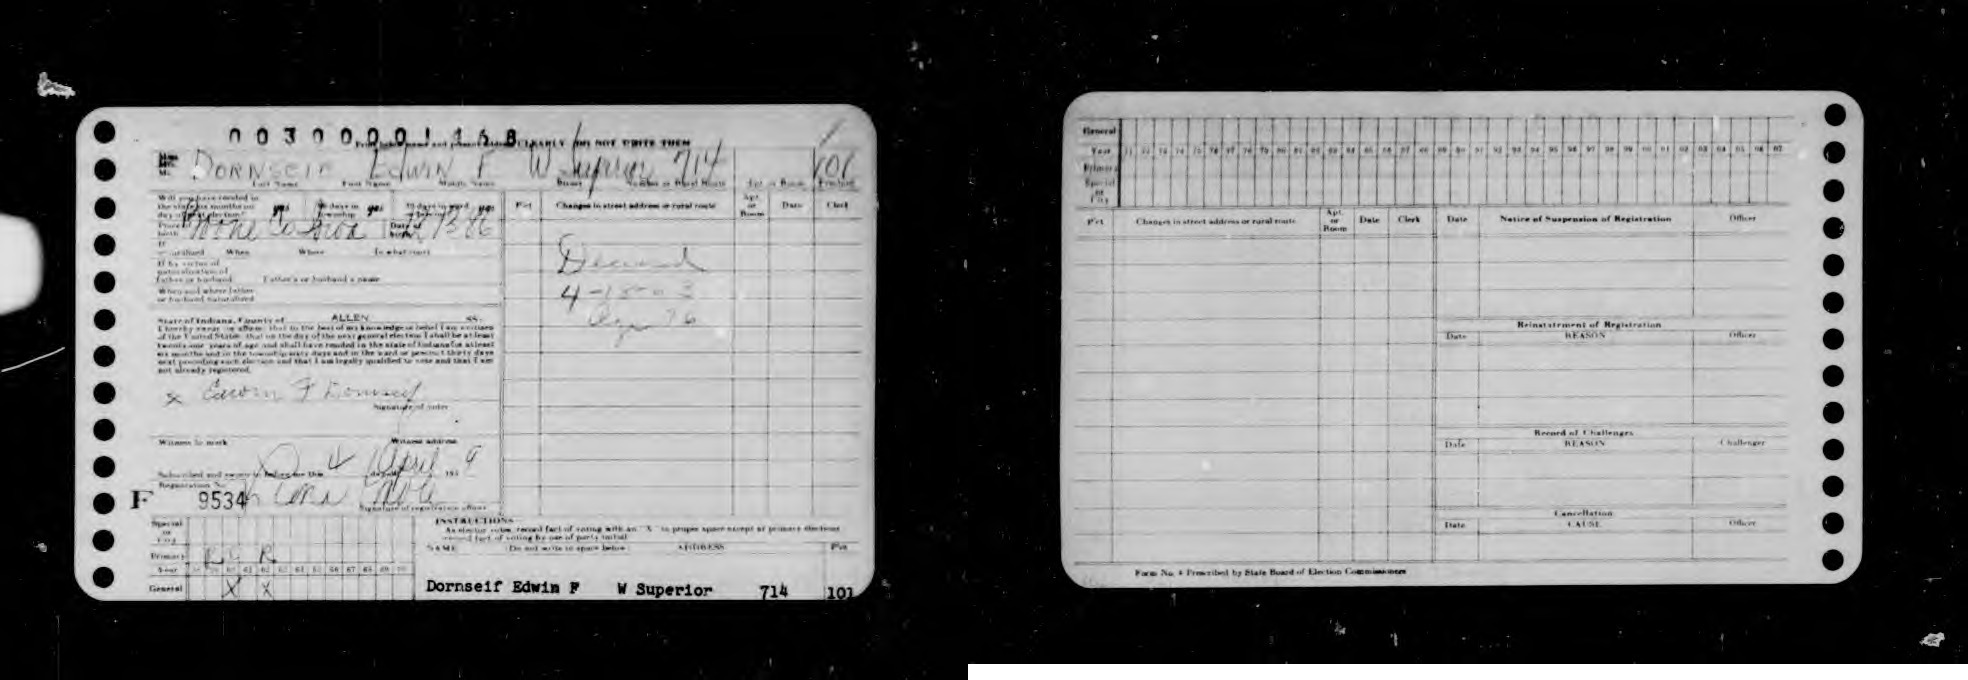 00300001468
Print below name and present address CLEARLY DO NOT WRITE THEM
DORNSEIF Edwin F W Superior 714 101
Last Name First Name Middle Name Street Number or Rural Route Apt. or Room Precinct
Will you have resided in
the state six months on
day of next election? yes 60 days in township yes 30 days in ward yes
Place of birth Boone Co Iowa Date of birth 13 86
If naturalized When Where In what court
If by virtue of
naturalization of
father or husband Father's or husband's name
When and where father
or husband naturalized
State of Indiana, County of ALLEN ss.
I hereby swear (or affirm) that to the best of my knowledge or belief I am a citizen
of the United States; that on the day of the next general election I shall be at least
twenty-one years of age and shall have resided in the state of Indiana for at least
six months and in the township sixty days and in the ward or precinct thirty days
next preceding such election and that I am legally qualified to vote and that I am
not already registered.
x Edwin F Dornseif
Signature of voter
Witness to mark Witness address
Subscribed and sworn to before me this 4 day of April 195 9
Registration No.
F 9534
Signature of registration officer
P'ct Changes in street address or rural route Apt. or Room Date Clerk
Deceased
4-15-63
Age 76
Special or City
Primary R R
Year 60 61 62 63 64 65 66 67 68 69 70
General X X
INSTRUCTIONS
As elector votes, record fact of voting with an "X" in proper space except at primary elections
record fact of voting by use of party initial
NAME (Do not write in space below) ADDRESS P'ct
Dornseif Edwin F W Superior 714 101
General
Year 71 72 73 74 75 76 77 78 79 80 81 82 83 84 85 86 87 88 89 90 91 92 93 94 95 96 97 98 99 00 01 02 03 04 05 06 07
Primary
Special or City
P'ct Changes in street address or rural route Apt. or Room Date Clerk
Date Notice of Suspension of Registration Officer
Reinstatement of Registration
Date REASON Officer
Record of Challenges
Date REASON Challenger
Cancellation
Date CAUSE Officer
Form No. 4 Prescribed by State Board of Election Commissioners